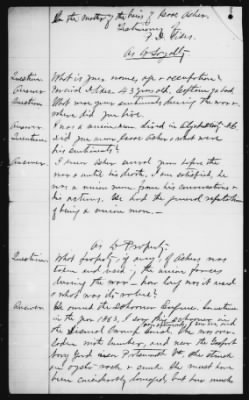 In the matter of the heirs of Jesse Asher.
Testimony
As to Loyalty
Question. What is your name, age & occupation?
Answer
Question What were your sentiments during the war &
where did you live.
Answer. I was a union man lived in Elizabeth City N.C.
Question, did you know Jesse Asher & what were
his sentiments?
Answer. I knew Asher several years before the
war & until his death. I am satisfied, he
was a union man from his conversations &
his actions. He had the general reputation
of being a union man. —
As to Property.
Question. What property if any, of Ashers was
taken and used, by the union forces
during the war — how long was it used
& what was its value?
Answer. He owned the schooner Sometime
in the year 1863, I saw this schooner in
the Dismal Swamp Canal. She was over-
laden with lumber, and near the Gosport
Navy Yard near Portsmouth Va, she struck
an & sunk. She must have
been considerably damaged, but how much